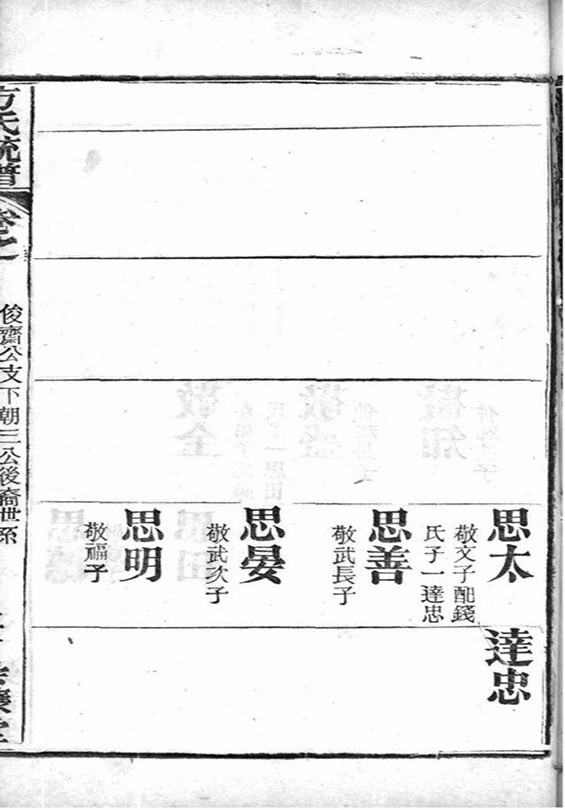 思太
敬文子配錢
氏子一達忠
思善
敬武長子
思晏
敬武次子
思明
敬福子
達忠
方氏統譜
卷之
俊齋公支下朝三公後裔世系